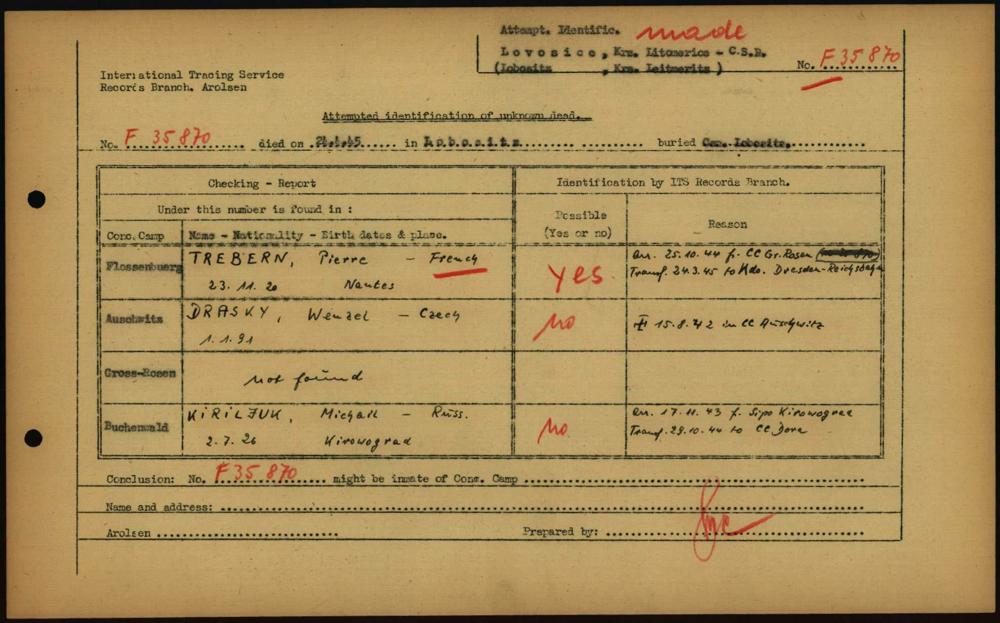 Attempt. Identific. made
Lovosice, Krs. Litomerice - C.S.R.
(Lobositz , Krs. Leitmeritz )
No. F 35 870
International Tracing Service
Records Branch. Arolsen
Attempted identification of unknown dead.
No. F 35 870 died on in Lobositz buried Cem. Lobositz.
Checking - Report
Identification by ITS Records Branch.
Under this number is found in :
Possible (Yes or no)
Reason
Conc. Camp
Name - Nationality - Birth dates & place.
Flossenbuerg
TREBERN, Pierre - French
23. 11. 20 Nantes
yes
arr. 25.10.44 f. CC Gr. Rosen
Transf. 24.3.45 to Kdo. Dresden-Reichsbahn
Auschwitz
DRASKY, Wenzel - Czech
1.1.91
no
15.8.42 in CC Auschwitz
Gross-Rosen
not found
Buchenwald
KIRILJUK, Michail - Russ.
2.7.26 Kirowograd
no
arr. 17.11.43 f. Sipo Kirowograd
Transf. 29.10.44 to CC Dora
Conclusion: No. F 35 870 might be inmate of Conc. Camp
Name and address:
Arolsen
Prepared by: